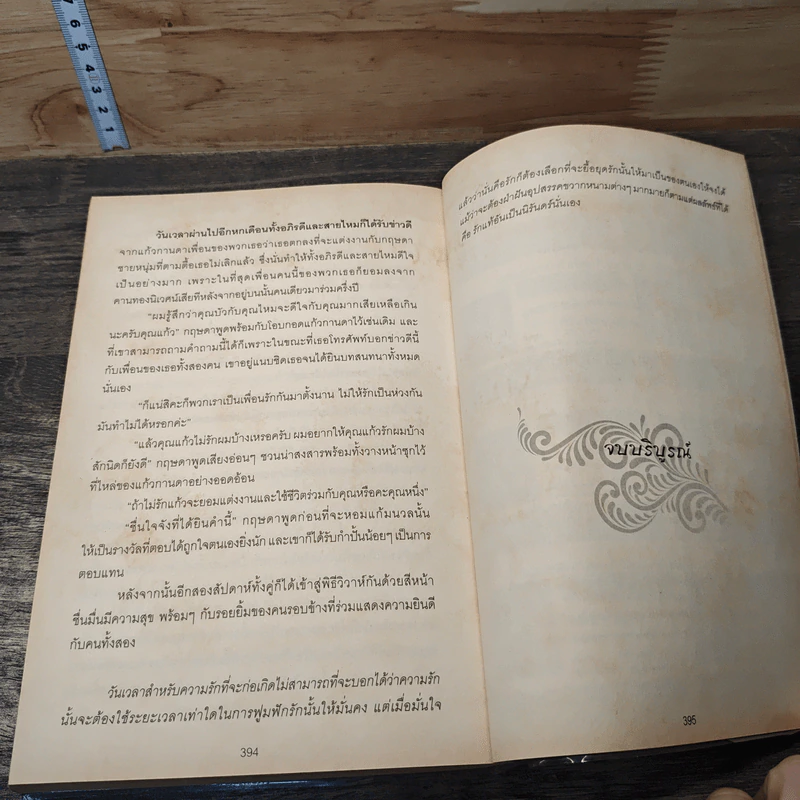 7
6
5
4
3
2
1
วันเวลาผ่านไปอีกหกเดือนทั้งอภิรดีและสายไหมก็ได้รับข่าวดี
จากแก้วกานดาเพื่อนของพวกเธอว่าเธอตกลงที่จะแต่งงานกับกฤษดา
ชายหนุ่มที่ตามตื้อเธอไม่เลิกแล้ว ซึ่งนั่นทำให้ทั้งอภิรดีและสายไหมดีใจ
เป็นอย่างมาก เพราะในที่สุดเพื่อนคนนี้ของพวกเธอก็ยอมลงจาก
คานทองนิเวศน์เสียทีหลังจากอยู่บนนั้นคนเดียวมาร่วมครึ่งปี
“ผมรู้สึกว่าคุณบัวกับคุณไหมจะดีใจกับคุณมากเสียเหลือเกิน
นะครับคุณแก้ว” กฤษดาพูดพร้อมกับโอบกอดแก้วกานดาไว้เช่นเดิม และ
ที่เขาสามารถถามคำถามนี้ได้ก็เพราะในขณะที่เธอโทรศัพท์บอกข่าวดีนี้
กับเพื่อนของเธอทั้งสองคน เขาอยู่แนบชิดเธอจนได้ยินบทสนทนาทั้งหมด
นั่นเอง
“ก็แน่สิคะก็พวกเราเป็นเพื่อนรักกันมาตั้งนาน ไม่ให้รักเป็นห่วงกัน
มันทำไม่ได้หรอกค่ะ”
“แล้วคุณแก้วไม่รักผมบ้างเหรอครับ ผมอยากให้คุณแก้วรักผมบ้าง
สักนิดก็ยังดี” กฤษดาพูดเสียงอ่อนๆ ชวนน่าสงสารพร้อมทั้งวางหน้าซุกไว้
ที่ไหล่ของแก้วกานดาอย่างออดอ้อน
“ถ้าไม่รักแก้วจะยอมแต่งงานและใช้ชีวิตร่วมกับคุณหรือคะคุณหนึ่ง”
“ชื่นใจจังที่ได้ยินคำนี้” กฤษดาพูดก่อนที่จะหอมแก้มนวลนั้น
ให้เป็นรางวัลที่ตอบได้ถูกใจตนเองยิ่งนัก และเขาก็ได้รับกำปั้นน้อยๆ เป็นการ
ตอบแทน
หลังจากนั้นอีกสองสัปดาห์ทั้งคู่ก็ได้เข้าสู่พิธีวิวาห์กันด้วยสีหน้า
ชื่นมื่นมีความสุข พร้อมๆ กับรอยยิ้มของคนรอบข้างที่ร่วมแสดงความยินดี
กับคนทั้งสอง
วันเวลาสำหรับความรักที่จะก่อเกิดไม่สามารถที่จะบอกได้ว่าความรัก
นั้นจะต้องใช้ระยะเวลาเท่าใดในการฟูมฟักรักนั้นให้มั่นคง แต่เมื่อมั่นใจ
394
แล้วว่านั่นคือรักก็ต้องเลือกที่จะยื้อยุดรักนั้นให้มาเป็นของตนเองให้จงได้
แม้ว่าจะต้องฝ่าฝันอุปสรรคขวากหนามต่างๆ มากมายก็ตามแต่ผลลัพธ์ที่ได้
คือ รักแท้อันเป็นนิรันดร์นั่นเอง
จบบริบูรณ์
395